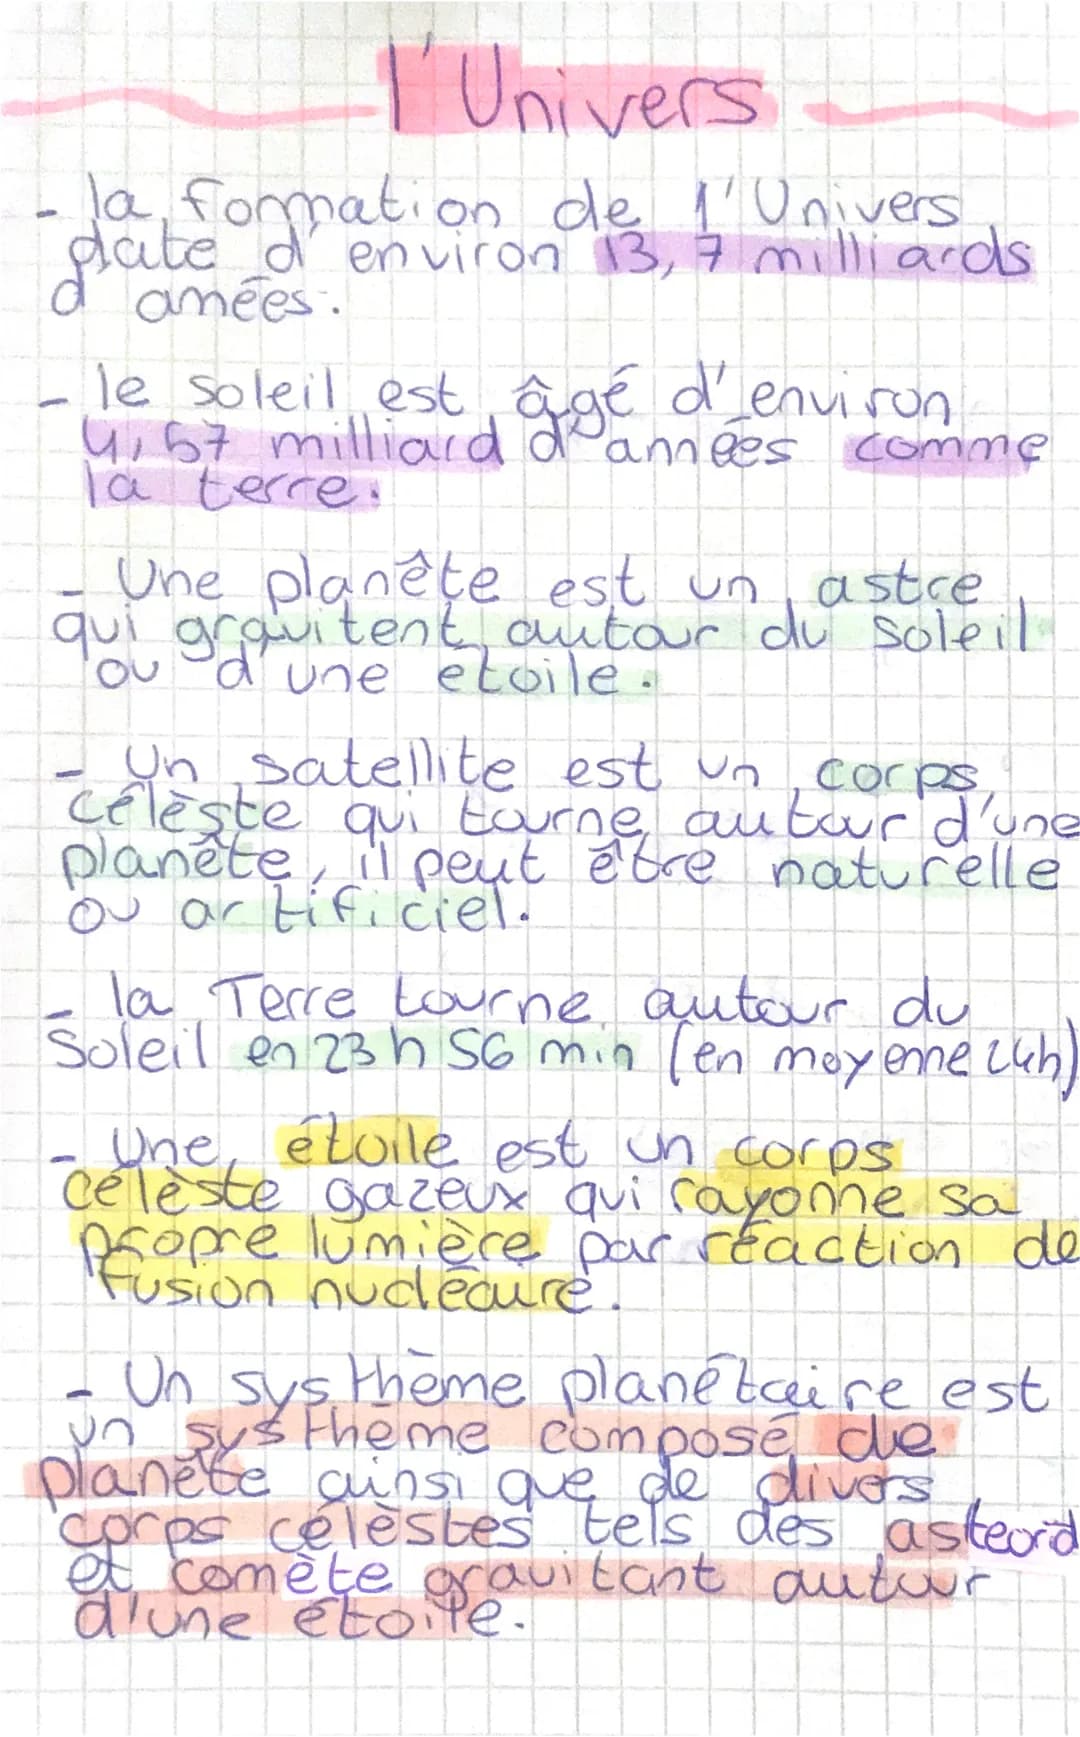 l'Univers
- la formation de l'Univers
date d'environ 13,7 milliards
d'années.
- le soleil est âgé d'environ
4,57 milliard d'années comme
la terre.
- Une planête est un astre
qui gravitent autour du soleil
ou d'une étoile.
- Un satellite est un corps
célèste qui tourne autour d'une
planête, il peut être naturelle
ou artificiel.
- la Terre tourne autour du
Soleil en 23h 56 min (en moyenne 24h)
- Une étoile est un corps
célèste gazeux qui rayonne sa
propre lumière par réaction de
fusion nucléaire.
- Un systhème planétaire est
un systhème composé de
planête ainsi que de divers
corps célèstes tels des asteord
et comète gravitant autour
d'une étoile.